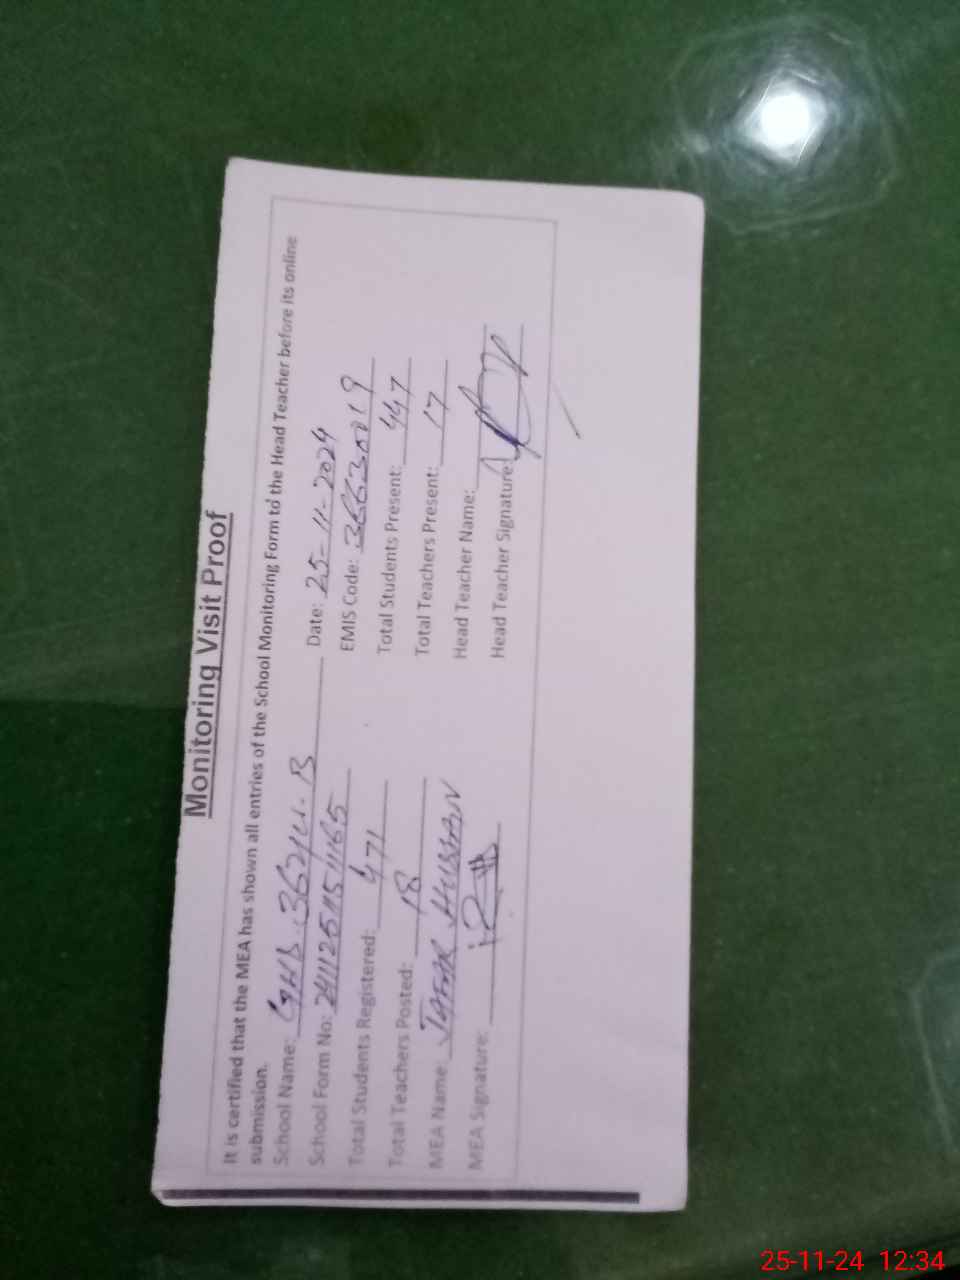 Monitoring Visit Proof
It is certified that the MEA has shown all entries of the School Monitoring Form to the Head Teacher before its online
submission.
School Name: GHS Date: 25-11-2024
School Form No: EMIS Code: 36630019
Total Students Registered: 471 Total Students Present: 447
Total Teachers Posted: 18 Total Teachers Present: 17
MEA Name: JAFAR HUSSAN Head Teacher Name:
MEA Signature: Head Teacher Signature:
25-11-24 12:34